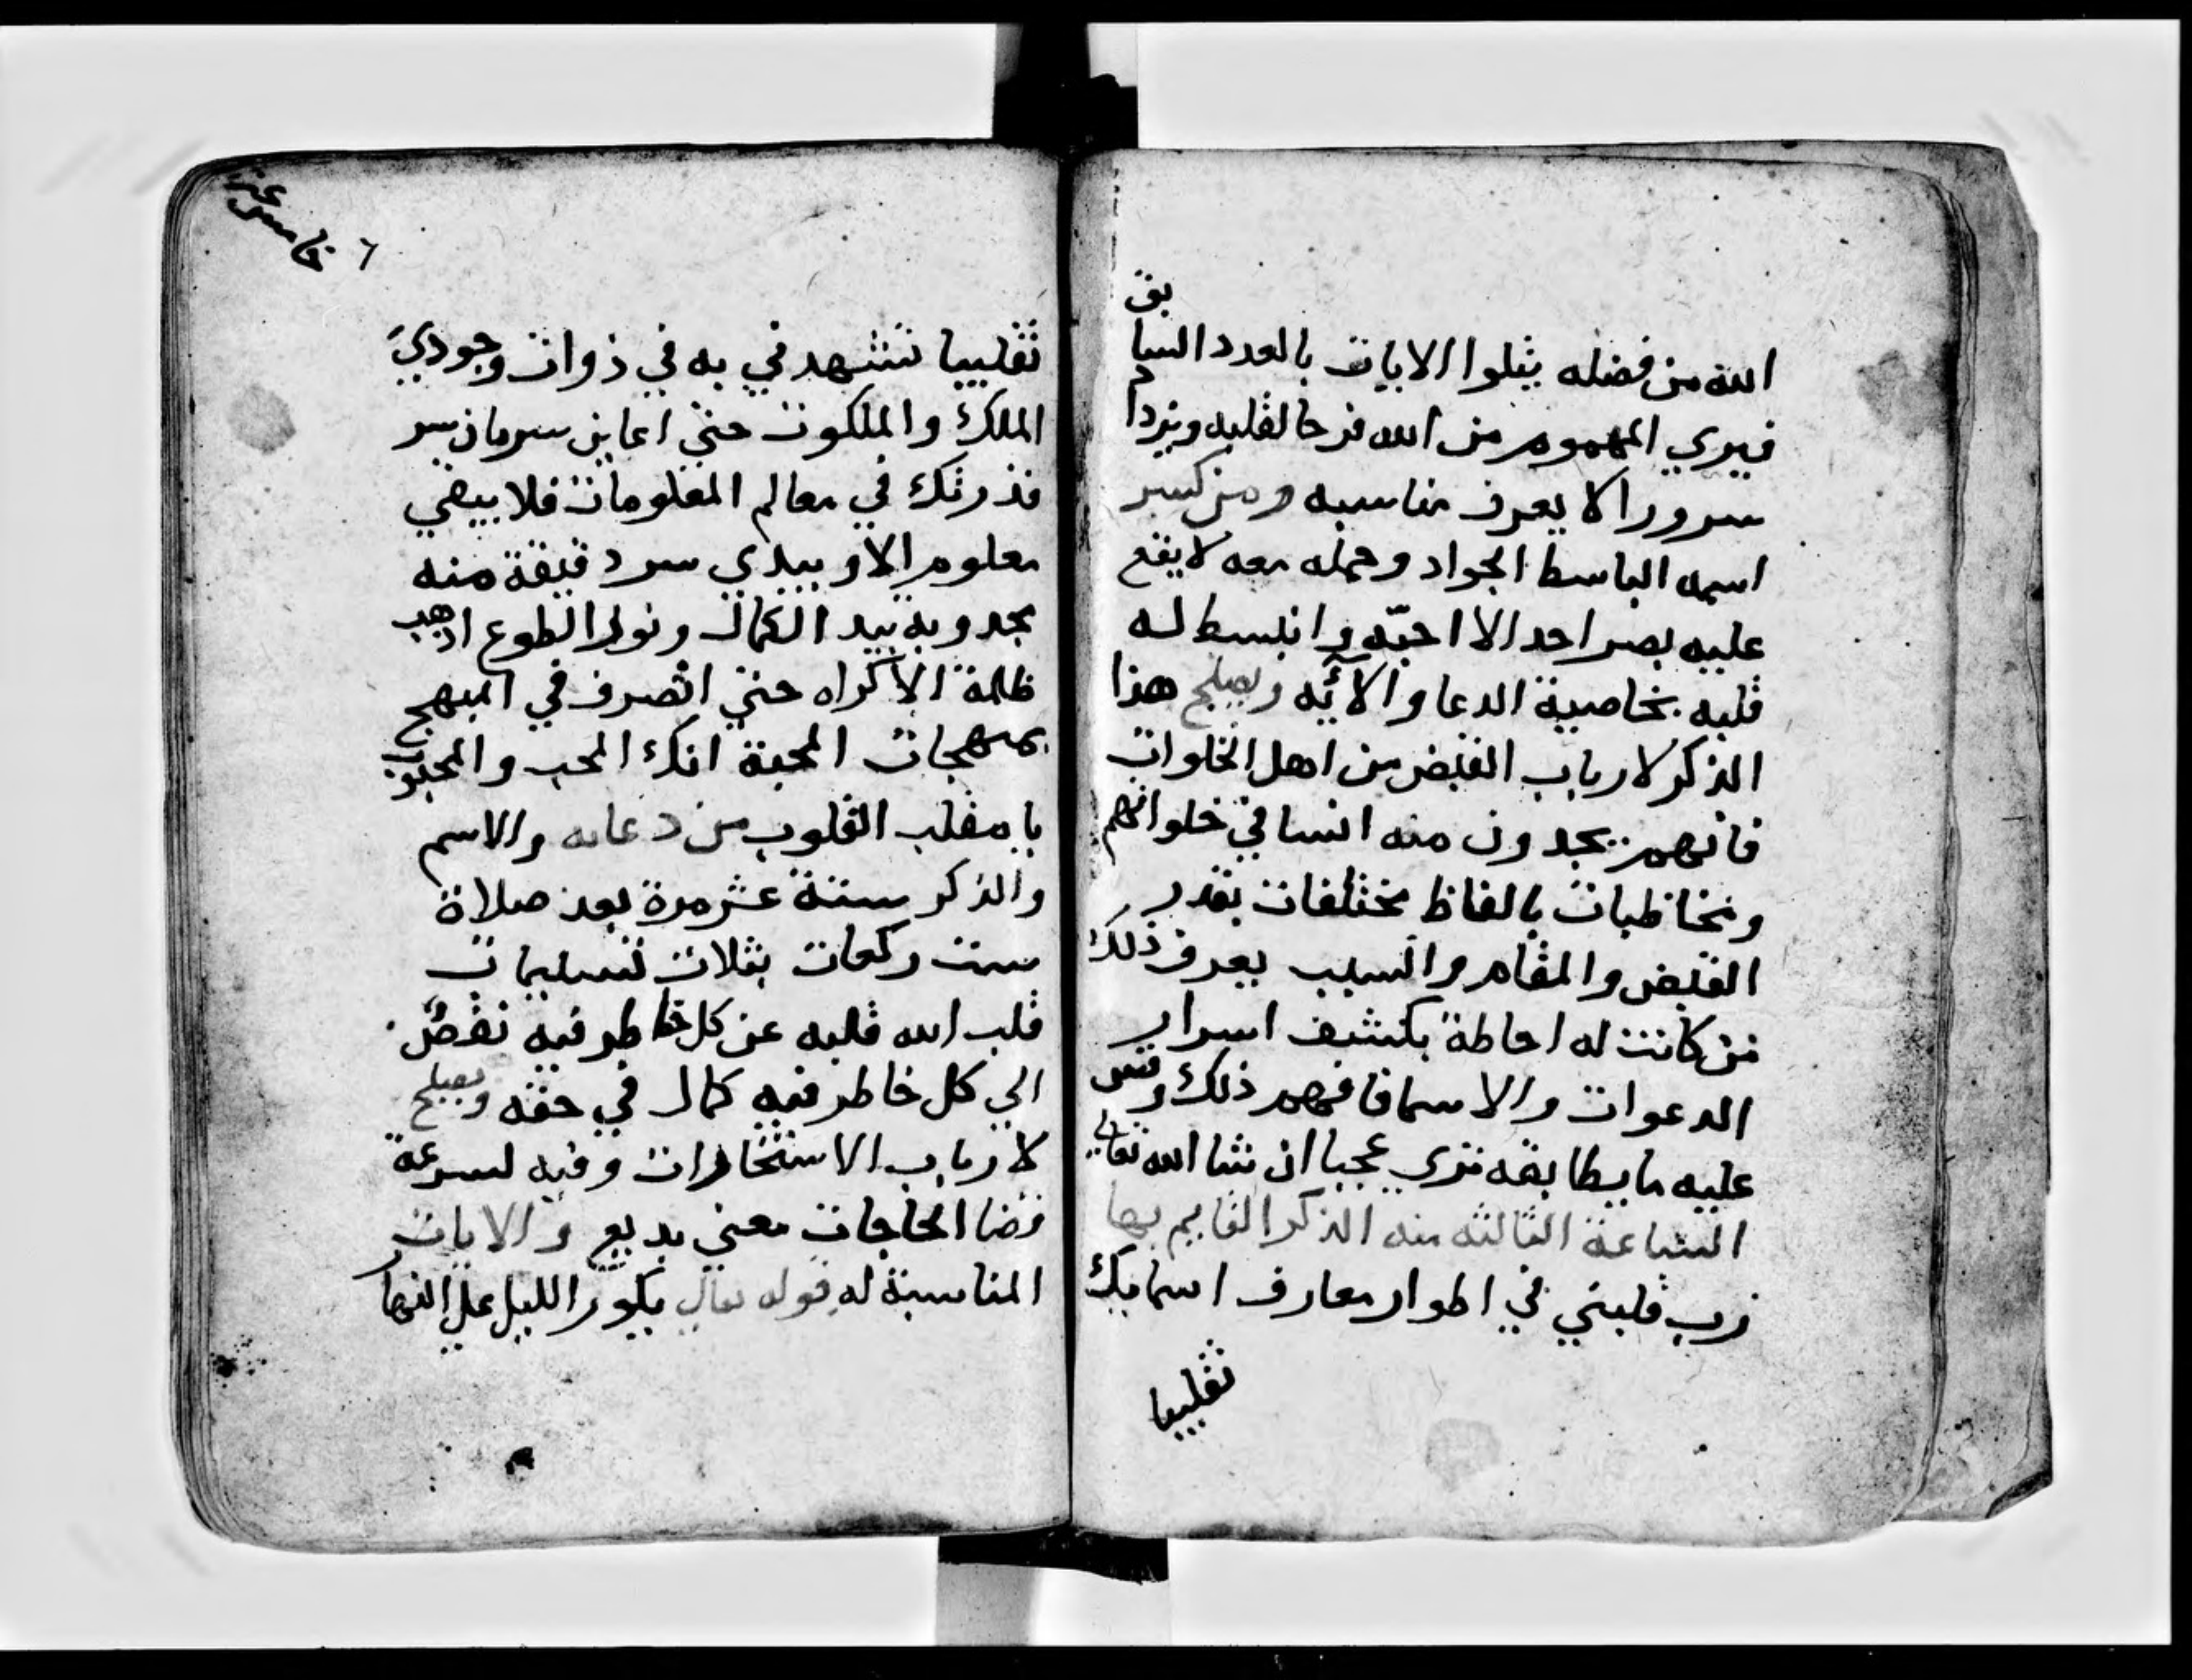 الله من فضله يتلوا الايات بالعدد السابق
فيري المهموم من الله فرحا لقلبه ويزداد
سرورا لا يعرف مناسبه ومن كسر
اسمه الباسط الجواد وحمله معه لا يقع
عليه بصر احد الا احبّه وانبسط له
قلبه بخاصية الدعا والآيه ويصلح هذا
الذكر لارباب القبض من اهل الخلوات
فانهم يجدون منه انسا في خلواتهم
ومخاطبات بالفاظ مختلفات بقدر
القبض والمقام والسبب يعرف ذلك
من كانت له احاطة بكشف اسرار
الدعوات والاسما فافهم ذلك وقس
عليه ما يطابقه تري عجبا ان شا الله تعالي
الساعة الثالثه منه الذكر القايم بها
رب قلبني في اطوار معارف اسمايك
تقليبا
٦ خامس عشر
تقليبا تشهدني به في ذوات وجودي
الملك والملكوت حتي اعاين سريان سر
قدرتك في معالم المعلومات فلا يبقي
معلوم الا وبيدي سر دقيقة منه
مجدوبة بيد الكمال ونور الطوع اذهب
ظلمة الاكراه حتي اتصرف في المهج
بمبهجات المحبة انك المحب والمحبوب
يا مقلب القلوب من دعابه والاسم
والذكر ستة عشر مرة بعد صلاة
ست ركعات بثلاث تسليمات
قلب الله قلبه عن كل خاطر فيه نقص
الي كل خاطر فيه كمال في حقه ويصلح
لارباب الاستخارات وفيه لسرعة
قضا الحاجات معني بديع والايات
المناسبة له قوله تعالي يكور الليل علي النهار